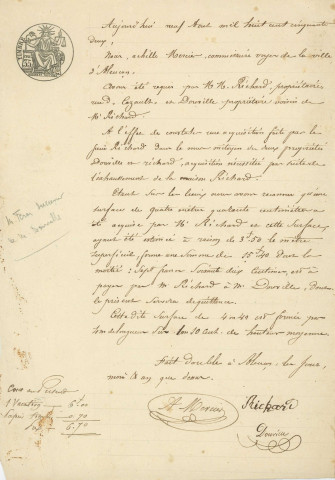 Aujourd'hui neuf Aout mil huit cent cinquante
deux,
Nous, achille Mercier, commissaire voyer de la ville
d'Alençon,
Avons été requis par M. Richard, propriétaire
rue de Cazault et Douville propriétaire voisin de
Mr Richard.
A l'effet de constater une acquisition faite par le
sieur Richard dans le mur mitoyen de deux propriétés
Douville et richard, acquisition nécessitée par suite de
l'exhaussement de la maison Richard.
Etant sur les lieux nous avons reconnu qu'une
surface de quatre mètres quarante centimètres a
été acquise par Mr Richard et cette surface
ayant été estimée à raison de 3f50 le mètre
superficiel, forme une somme de 15f40 dont la
moitié: Sept francs soixante dix centimes, est à
payer par Mr Richard à Mr Douville, dont
le présent servira de quittance.
Cette dite surface de 4m40 est formée par
4m de longueur sur 1m10 cent. de hauteur moyenne.
Fait double à Alençon les jour,
mois & an que dessus.
A. Mercier
Richard
Douville
1 Vacation 6.00
0.70
6.70